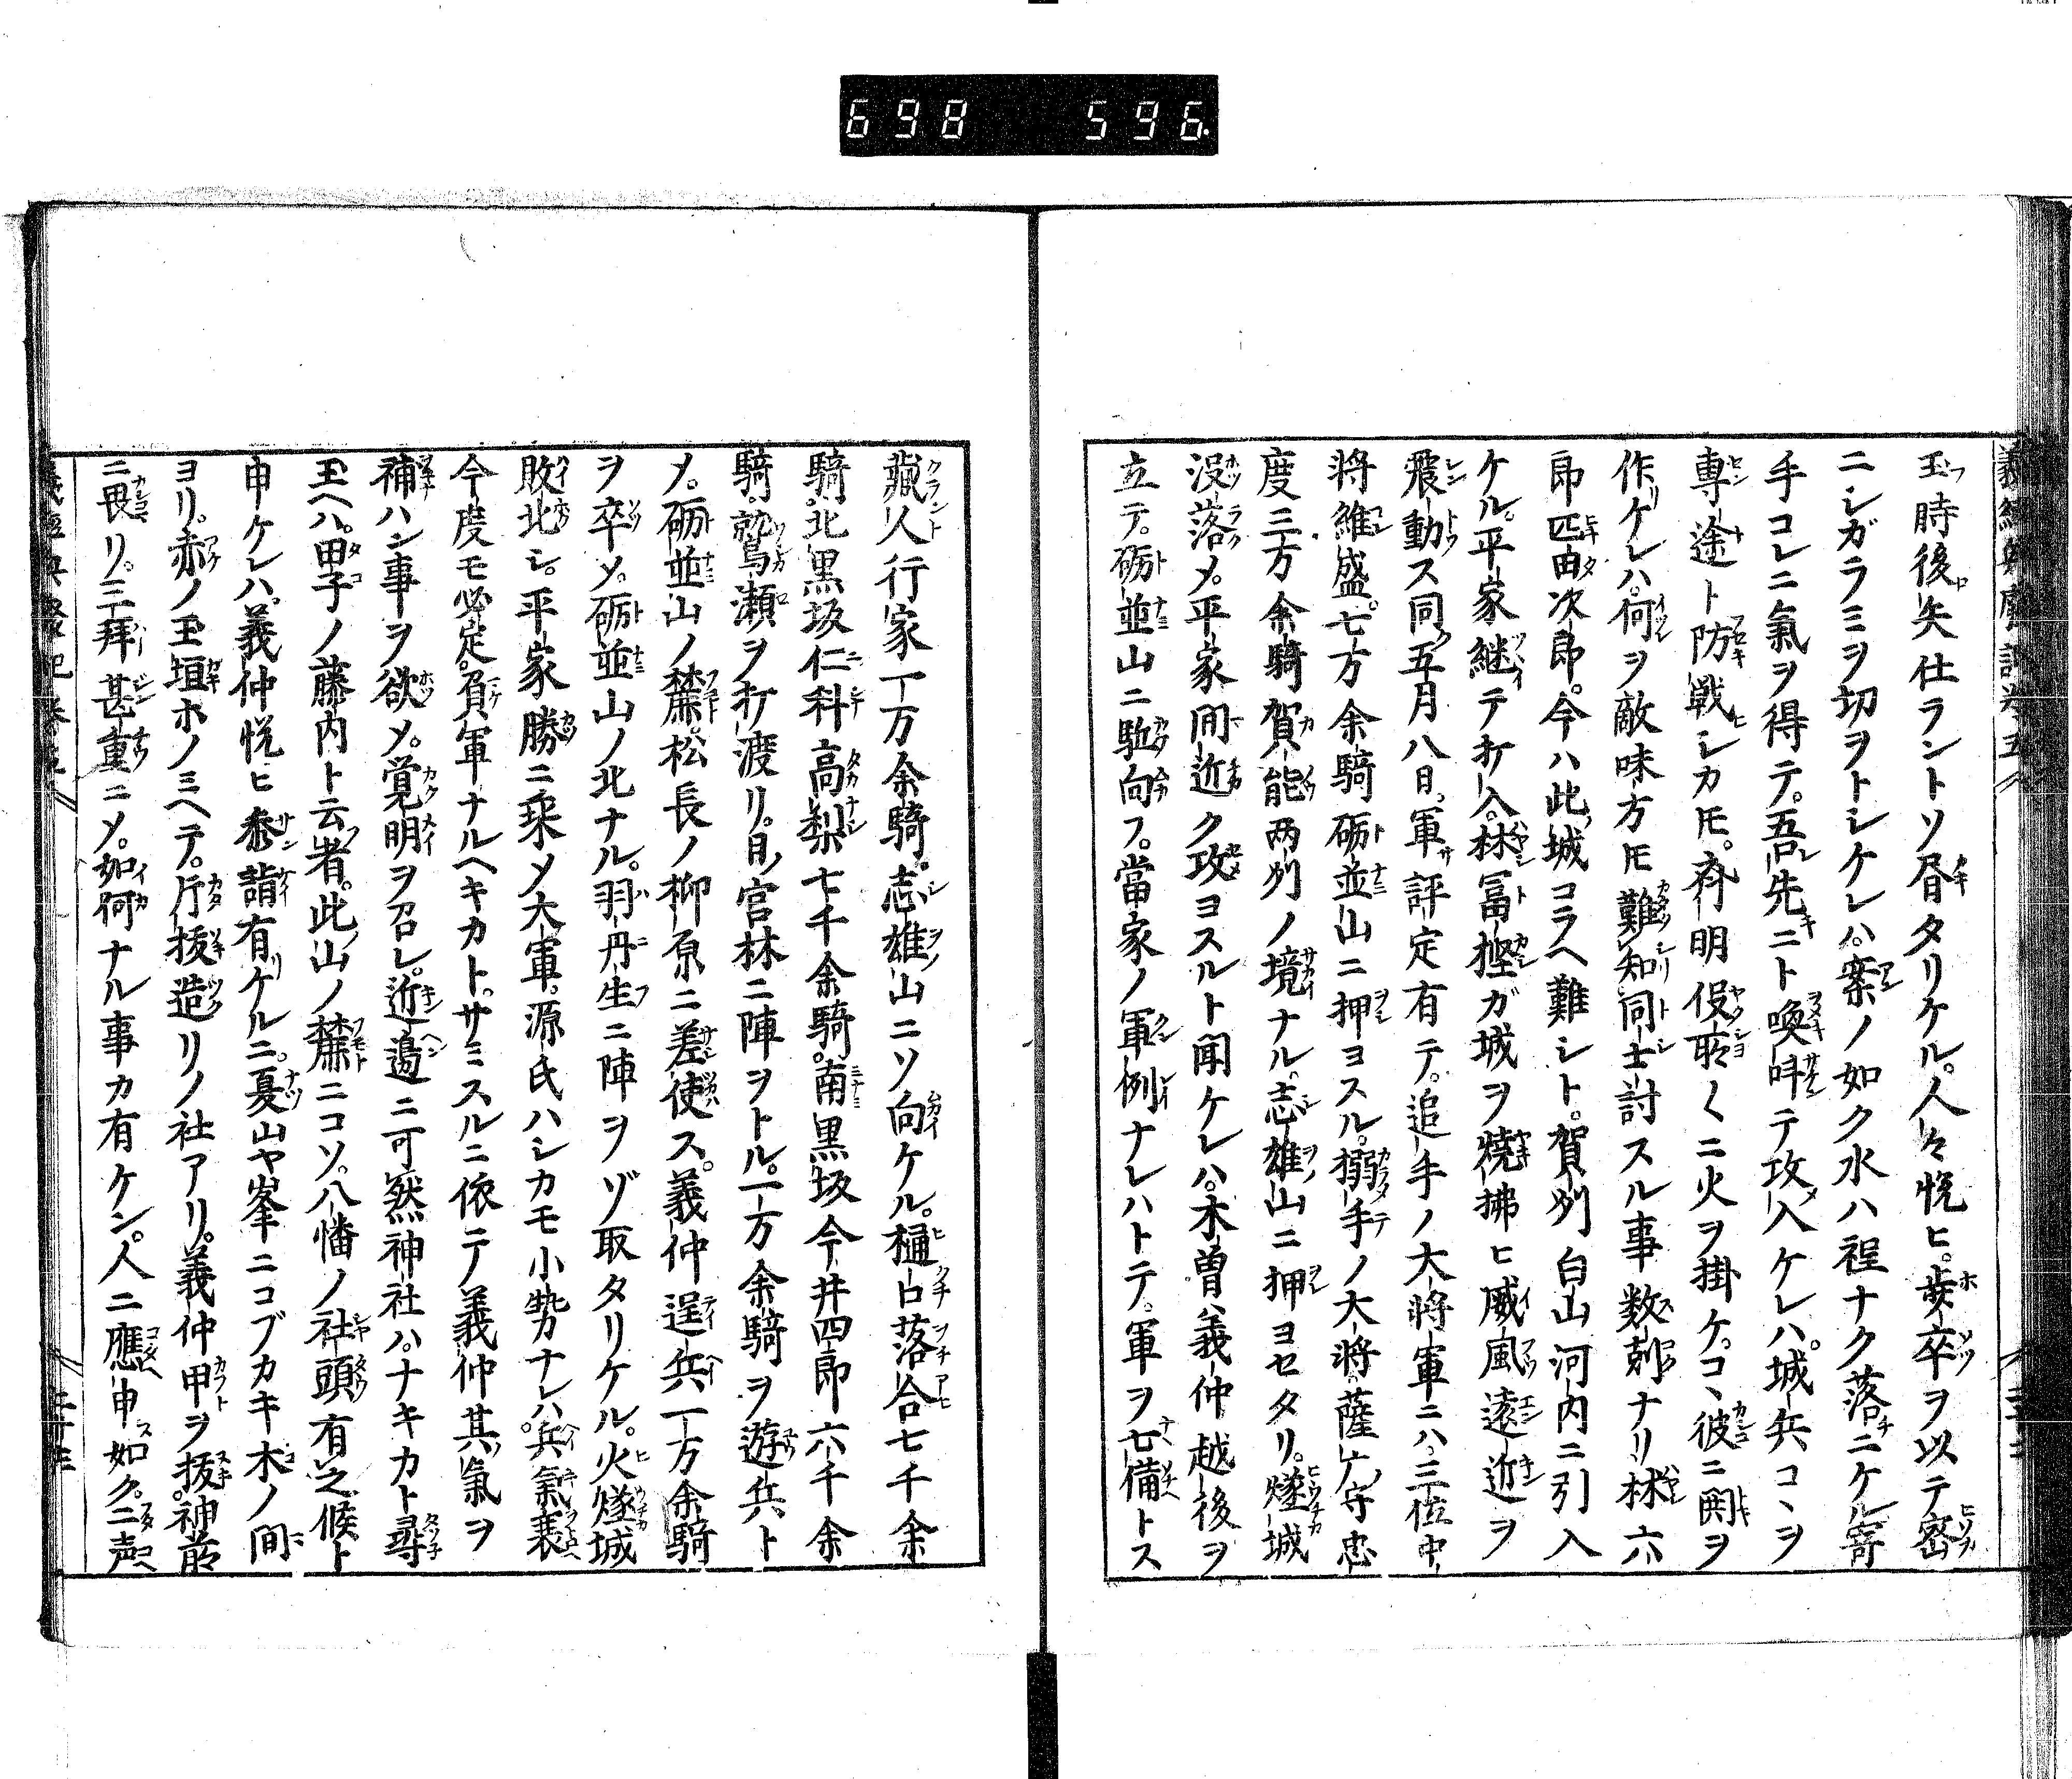 698 596.
玉時後矢仕ラントソ㫺タリケル。人々悦ヒ。歩卒ヲ以テ密
ニシガラミヲ切ヲトシケレハ。案ノ如ク水ハ程ナク落ニケル寄
手コレニ氣ヲ得テ。吾先ニト喚叫テ攻入ケレハ。城兵コヽヲ
專途ト防戦シカ𪜈。斉明役所〱ニ火ヲ掛ケ。コヽ彼ニ閧ヲ
作ケレハ。何ヲ敵味方𪜈難知同士討スル事数剋ナリ林六
郎匹田次郎。今ハ此城コラヘ難シト。賀刕白山河内ニ引入
ケル。平家継テ打入。林冨樫ガ城ヲ燒拂ヒ威風遠近ヲ
震動ス同五月八日。軍評定有テ。追手ノ大将軍ニハ三位中
将維盛。七万余騎砺並山ニ押ヨスル。搦手ノ大将薩广守忠
度三万余騎賀能两刕ノ境ナル。志雄山ニ押ヨセタリ。燧城
没落メ。平家間近ク攻ヨスルト聞ケレハ。木曽義仲越後ヲ
立テ。砺並山ニ馳向フ。當家ノ軍例ナレハトテ。軍ヲ七備トス
藏人行家一万余騎。志雄山ニソ向ケル。樋口落合七千余
騎。北黒坂仁科高梨七千余騎。南黒坂今井四郎六千余
騎。鷲瀬ヲ打渡リ。日ノ宮林ニ陣ヲトル。一万余騎ヲ遊兵ト
メ。砺並山ノ麓。松長ノ柳原ニ差使ス。義仲逞兵一万余騎
ヲ卒メ。砺並山ノ北ナル。羽丹生ニ陣ヲゾ取タリケル。火燧城
敗北シ。平家勝ニ乗メ大軍。源氏ハシカモ小勢ナレハ。兵氣衰
今度モ必定。負軍ナルヘキカト。サミスルニ依テ義仲其氣ヲ
補ハン事ヲ欲メ。覚明ヲ召レ。近邉ニ可然神社ハ。ナキカト尋
玉ヘハ。田子ノ藤内ト云者。此山ノ麓ニコソ。八幡ノ社頭有之候ト
申ケレハ。義仲悦ヒ参詣有ケルニ。夏山ヤ峯ニコブカキ木ノ間
ヨリ。赤ノ玉垣ホノミヘテ。片扱造リノ社アリ。義仲甲ヲ抜。神前
ニ畏リ。三拜甚重ニメ。如何ナル事カ有ケン。人ニ應申如ク。二声